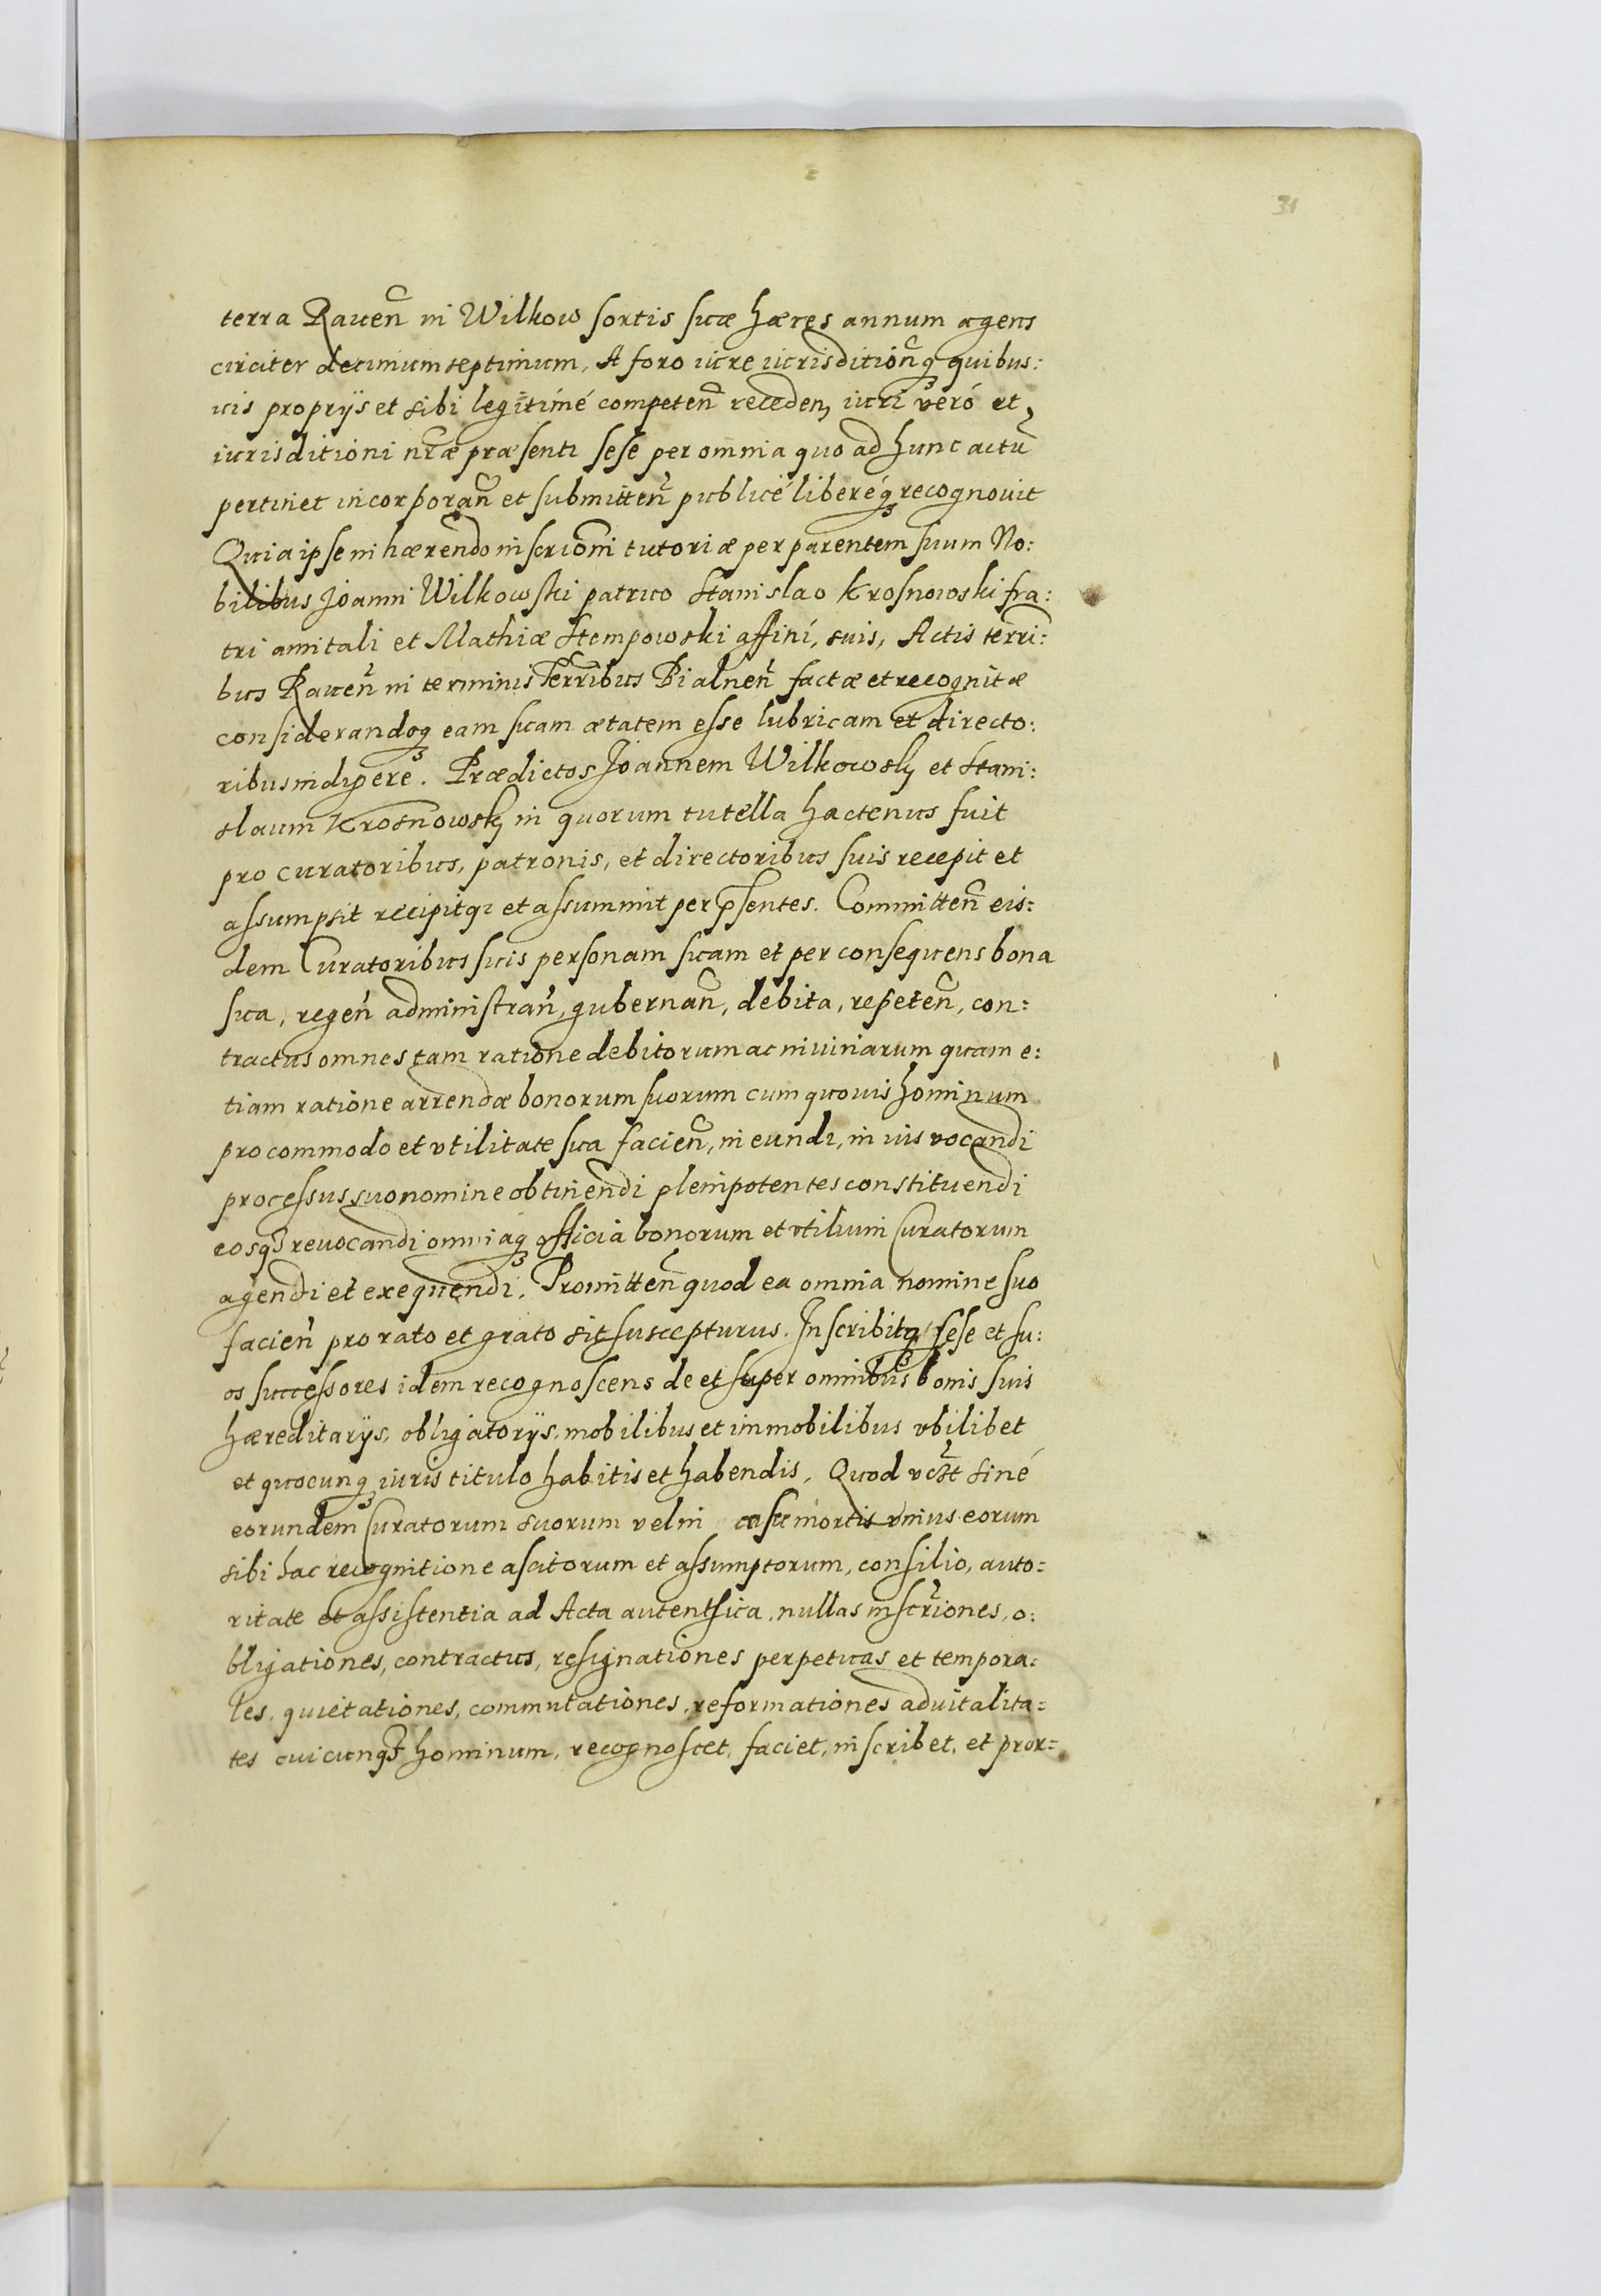 31
terra Rauen̄ in Wilkow sortis suæ hæres annum agens
circiter decimum septimum, A foro iure iurisditionq̃ quibus:
uis proprijs et sibi legitimé competen̄ receden, iuri veró et
iurisditioni nr̄æ præsenti sese per omnia quo ad hunc actū
pertinet incorporan̄ et submitten̄ publicé liberéq̃ recognouit
Quia ipse inhærendo inscrioni tutoriæ per parentem suum No:
bilibus Joanni Wilkowski patruo Stanislao Krosnowski fra:
tri amitali et Mathiæ Stempowski affini, suis, Actis terri:
bus Rauen̄ in terminis Terribus Bialnen̄ factæ et recognitæ
considerandoq̃ eam suam ætatem esse lubricam et directo:
ribus indigere. Prædictos Joannem Wilkowsky et Stani:
slaum Krosnowsky in quorum tutella hactenus fuit
pro curatoribus, patronis, et directoribus suis recepit et
assumpsit recipitq₃ et assummit per p̄sentes. Committen̄ eis:
dem Curatoribus suis personam suam et per consequens bona
sua, regen̄ administran̄, gubernan̄, debita, repeten̄, con:
tractus omnes tam ratione debitorum ac iniuriarum quam e:
tiam ratione arrendæ bonorum suorum cum quouis hominum
pro commodo et vtilitate sua facien̄, ineundi, in ius vocandi
processus suo nomine obtinendi plenipotentes constituendi
eosq₃ reuocandi omniaq̃ officia bonorum et vtilium Curatorum
agendi et exequendi. Promitten̄ quod ea omnia nomine suo
facien̄ pro rato et grato sit suscepturus. Inscribitq̃ sese et su:
os successores idem recognoscens de et super omnibus bonis suis
hæreditarijs, obligatorijs, mobilibus et immobilibus vbilibet
et quocunq̃ iuris titulo habitis et habendis. Quod siné
eorundem Curatorum suorum vel in casu mortis vnius eorum
sibi hac recognitione ascitorum et assumptorum, consilio, auto:
ritate et assistentia ad Acta autentica, nullas inscr̄iones, o:
bligationes, contractus, resignationes perpetuas et tempora:
les, quietationes, commutationes, reformationes aduitalita:
tes cuicunq₃ hominum, recognoscet, faciet, inscribet, et pror: